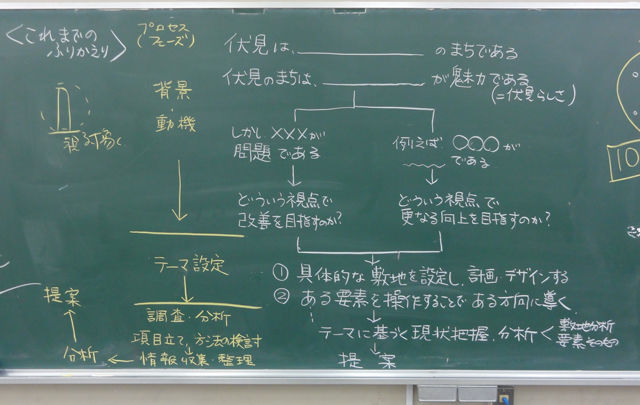 <これまでの
ふりかえり>
プロセス
(フェーズ)
背景
・
動機
テーマ設定
調査・分析
項目立て,方法の検討
情報収集・整理
分析
提案
伏見は、 のまちである
伏見のまちは、 が魅力である
(=伏見らしさ)
しかし ×××が
問題である
どういう視点で
改善を目指すのか?
例えば 〇〇〇が
である
どういう視点で
更なる向上を目指すのか?
① 具体的な敷地を設定し、計画・デザインする
② ある要素を操作することである方向に導く
テーマに基づく現状把握、分析<
敷地分析
要素そのもの
提案
10